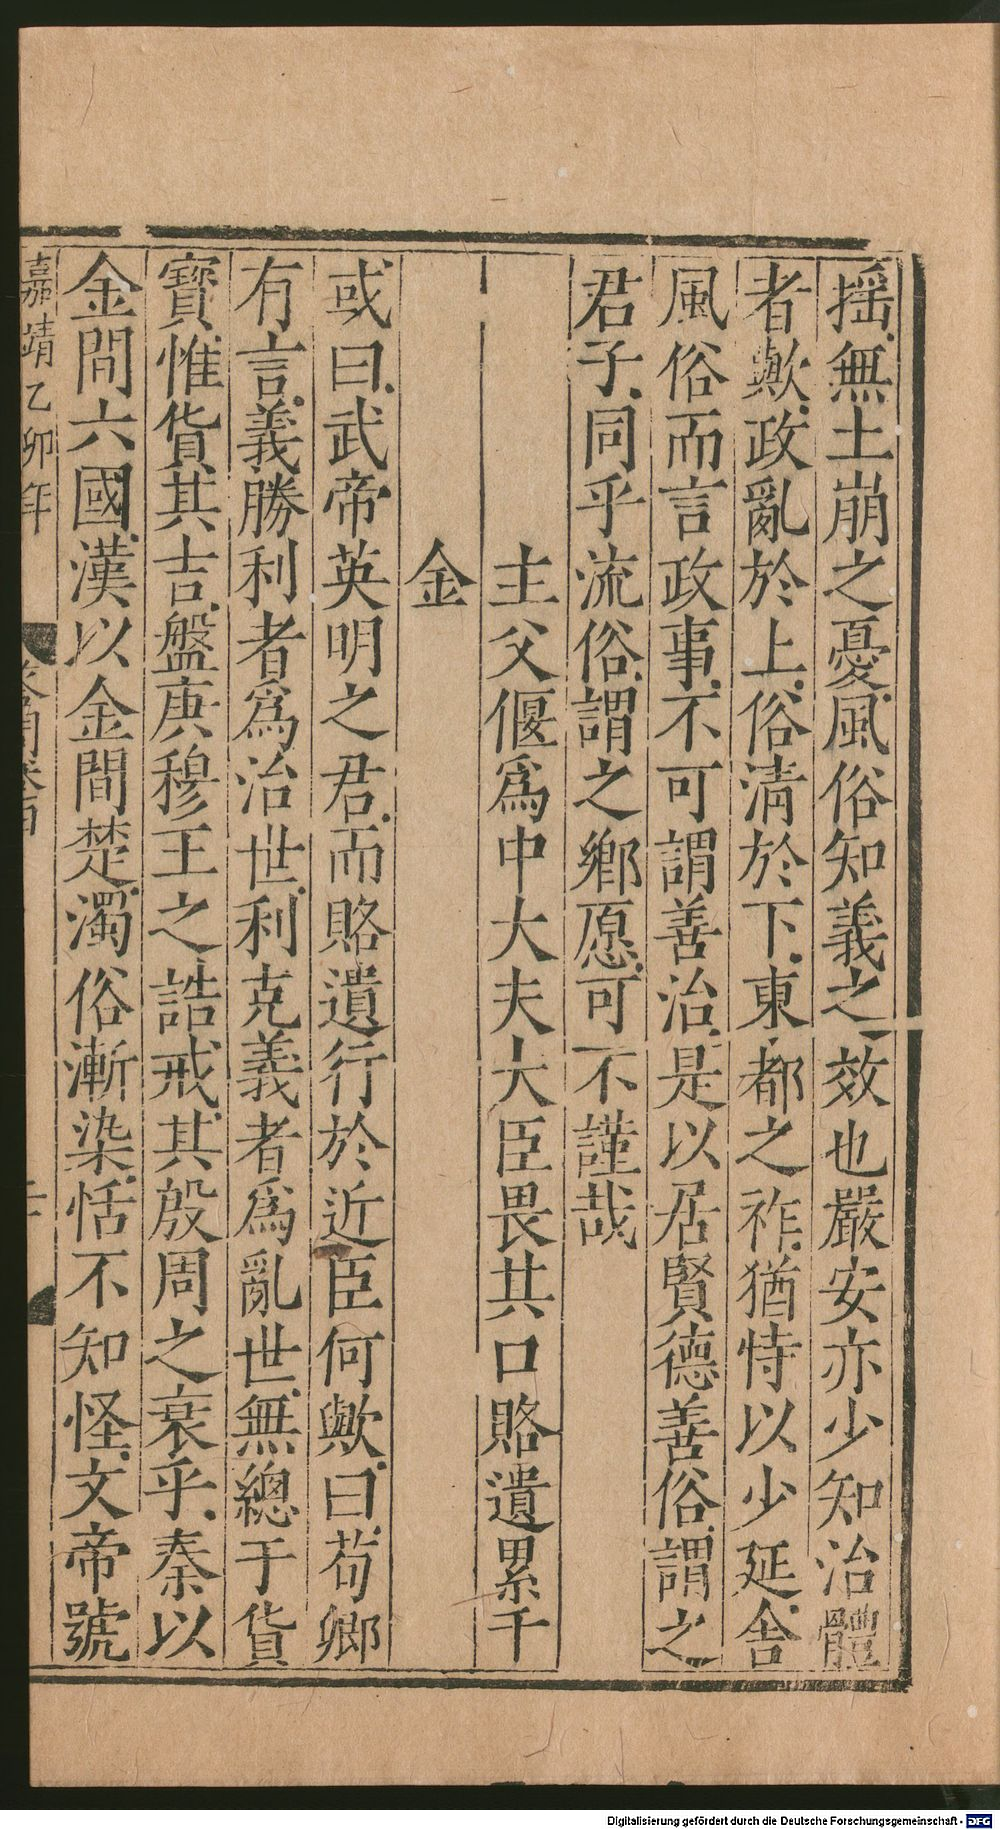 搖無土崩之憂風俗知義之效也嚴安亦少知治體
者歟政亂於上俗清於下東都之祚猶恃以少延舍
風俗而言政事不可謂善治是以居賢德善俗謂之
君子同乎流俗謂之鄉愿可不謹哉
主父偃爲中大夫大臣畏其口賂遺累千
金
或曰武帝英明之君而賂遺行於近臣何歟曰荀卿
有言義勝利者爲治世利克義者爲亂世無總于貨
寶惟貨其吉盤庚穆王之誥戒其殷周之衰乎秦以
金間六國漢以金間楚濁俗漸染恬不知怪文帝號
嘉靖乙卯年
Digitalisierung gefördert durch die Deutsche Forschungsgemeinschaft - DFG